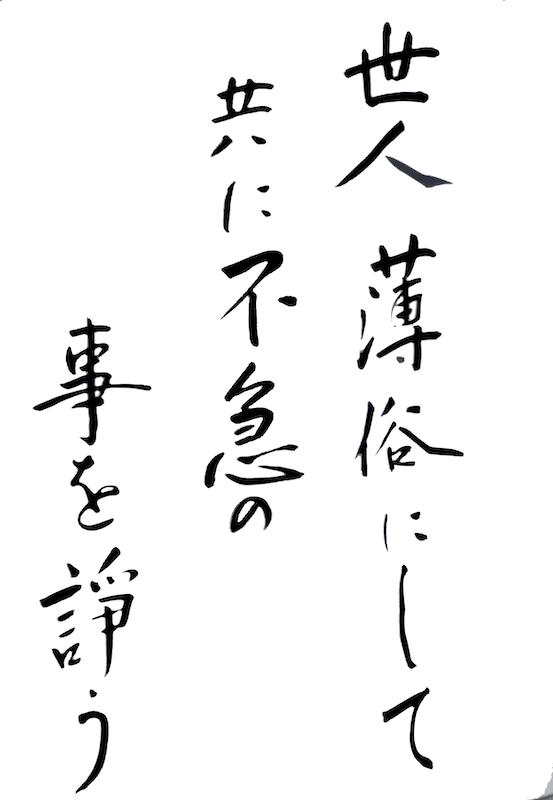 世人薄俗にして
共に不急の
事を諍う